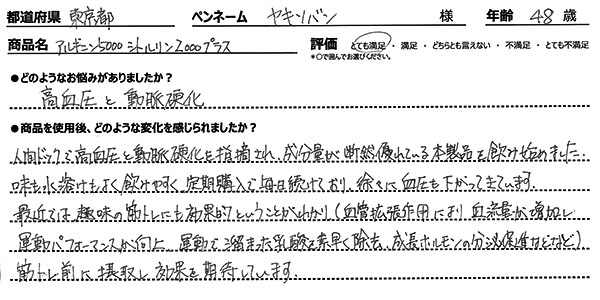 都道府県 東京都 ペンネーム ヤキソバン 様 年齢 48 歳
商品名 アルギニン5000 シトルリン2000プラス 評価 とても満足・満足・どちらとも言えない・不満足・とても不満足
*○で囲んでお選びください。
●どのようなお悩みがありましたか?
高血圧と動脈硬化
●商品を使用後、どのような変化を感じられましたか?
人間ドックで高血圧と動脈硬化を指摘され、成分量が断然優れている本製品を飲み始めました。
味も水溶けもよく飲みやすく、定期購入で毎日続けており、徐々に血圧も下がってきています。
最近では趣味の筋トレにも効果的ということがわかり(血管拡張作用により血流量が増加し
運動パフォーマンスが向上、運動で溜まった乳酸を素早く除去、成長ホルモンの分泌促進などなど)
筋トレ前に摂取し効果を期待しています。